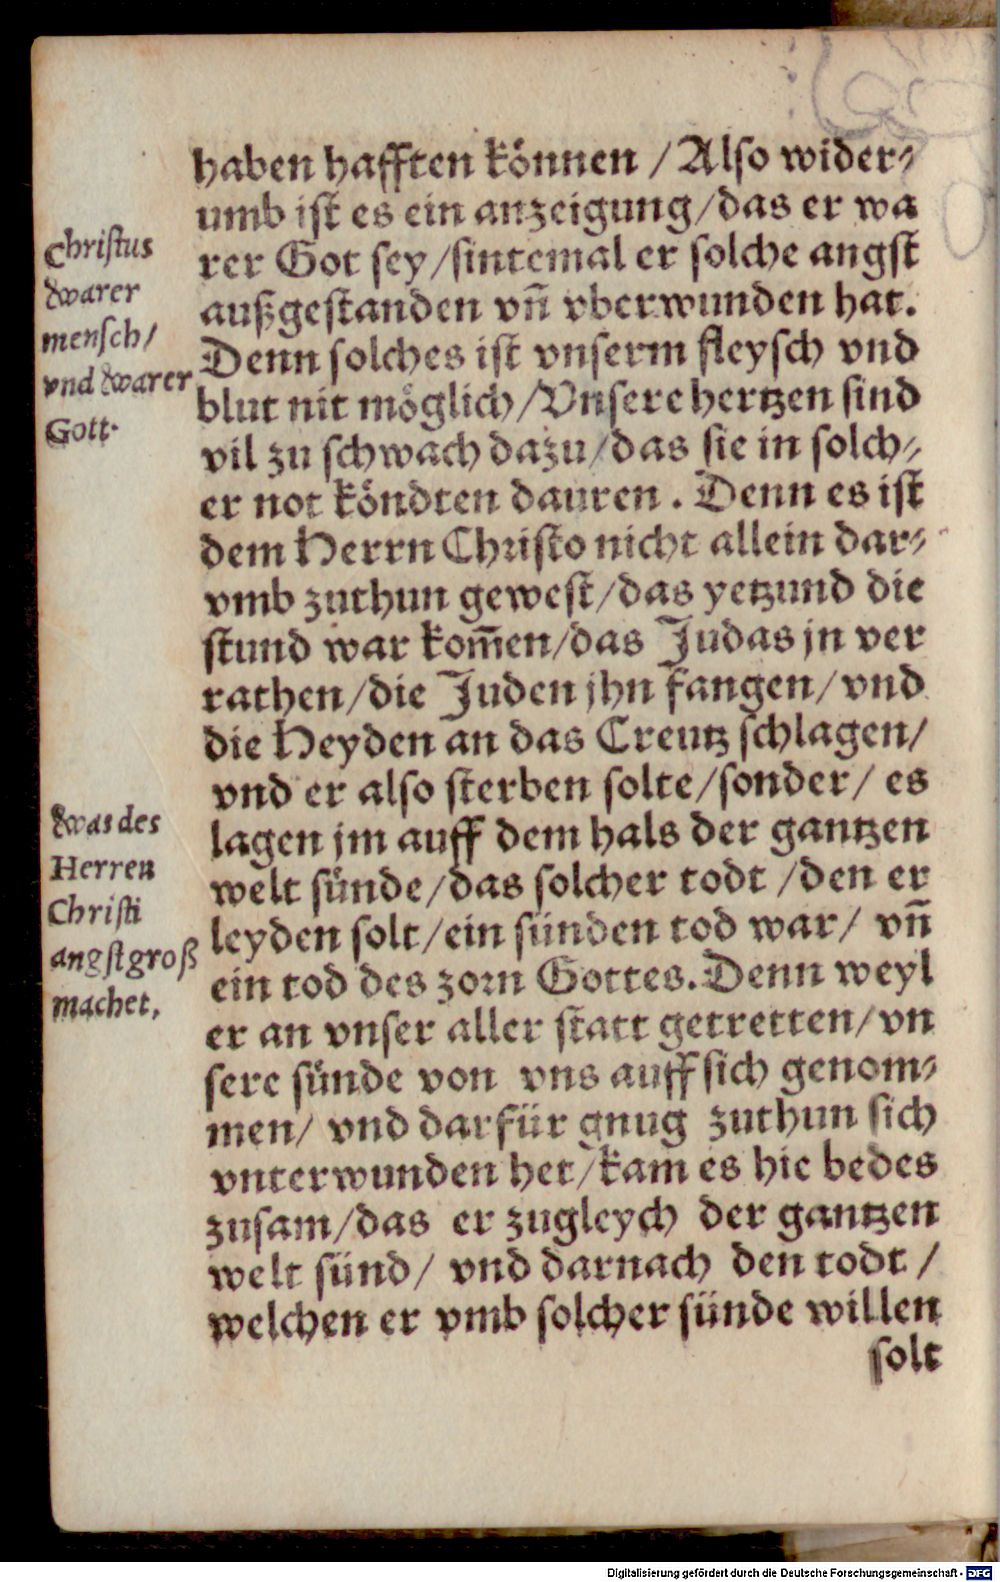 haben hafften können / Also wider⸗
umb ist es ein anzeigung/das er wa
rer Got sey/sintemal er solche angst
außgestanden vñ vberwunden hat.
Denn solches ist vnserm fleysch vnd
blut nit möglich/Vnsere hertzen sind
vil zu schwach dazu/das sie in solch⸗
er not köndten dauren. Denn es ist
dem Herrn Christo nicht allein dar⸗
vmb zuthun gewest/das yetzund die
stund war kom̃en/das Judas jn ver
rathen/die Juden jhn fangen/vnd
die Heyden an das Creutz schlagen/
vnd er also sterben solte/sonder/ es
lagen jm auff dem hals der gantzen
welt sünde/das solcher todt /den er
leyden solt/ein sünden tod war/ vñ
ein tod des zorn Gottes. Denn weyl
er an vnser aller statt getretten/vn
sere sünde von vns auff sich genom⸗
men/ vnd darfür gnug zuthun sich
vnterwunden het/kam es hie bedes
zusam/das er zugleych der gantzen
welt sünd/ vnd darnach den todt /
welchen er vmb solcher sünde willen
solt
Christus
warer
mensch/
vnd warer
Gott.
Was des
Herren
Christi
angst groß
machet,
Digitalisierung gefördert durch die Deutsche Forschungsgemeinschaft - DFG